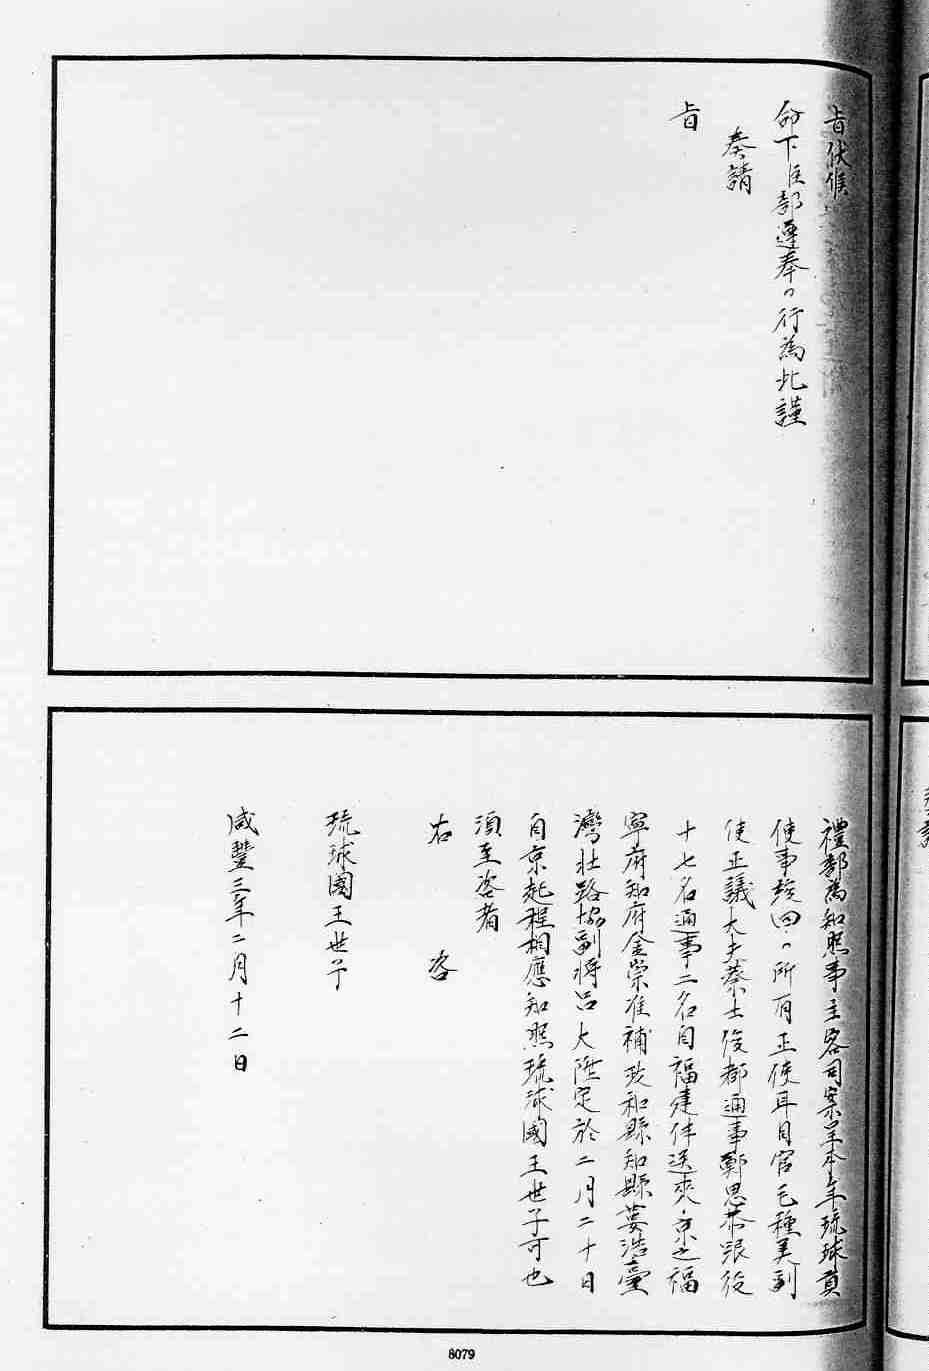 旨伏候
命下臣部遵奉〻行為此謹
奏請
旨
禮部為知照事主客司案呈本年琉球貢
使事竣囘〻所有正使耳目官毛種美副
使正議大夫蔡士俊都通事鄭思恭跟役
十七名通事二名自福建伴送來京之福
寧府知府金崇准補政和縣知縣婁浩臺
灣北路協副將呂大陞定於二月二十日
自京起程相應知照琉球國王世子可也
須至咨者
右 咨
琉球國王世子
咸豐三年二月十二日
8079